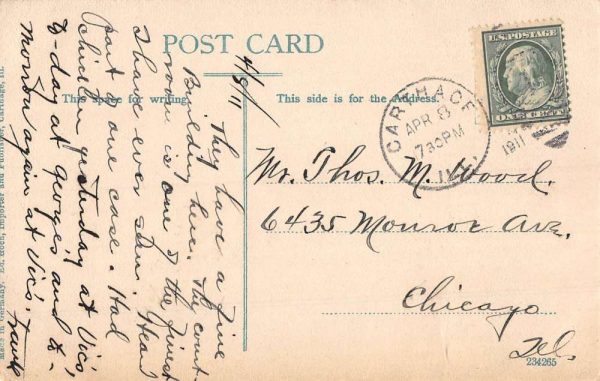 POST CARD
This space for writing.
This side is for the Address.
U.S. POSTAGE
ONE CENT
CARTHAGE
APR 8
730PM
ILL.
1911
4/8/11
They have a fine
Building here. The court
room is one of the finest
I have ever seen. Head
part of one case. Had
chicken yesterday at Vic's,
to-day at George's and to-
morrow again at Vic's.
Frank
Mr. Thos. M. Wood.
6435 Monroe Ave.
Chicago
Ill.
234265
Made in Germany. Ed. Importer and Publisher, Carthage, Ill.